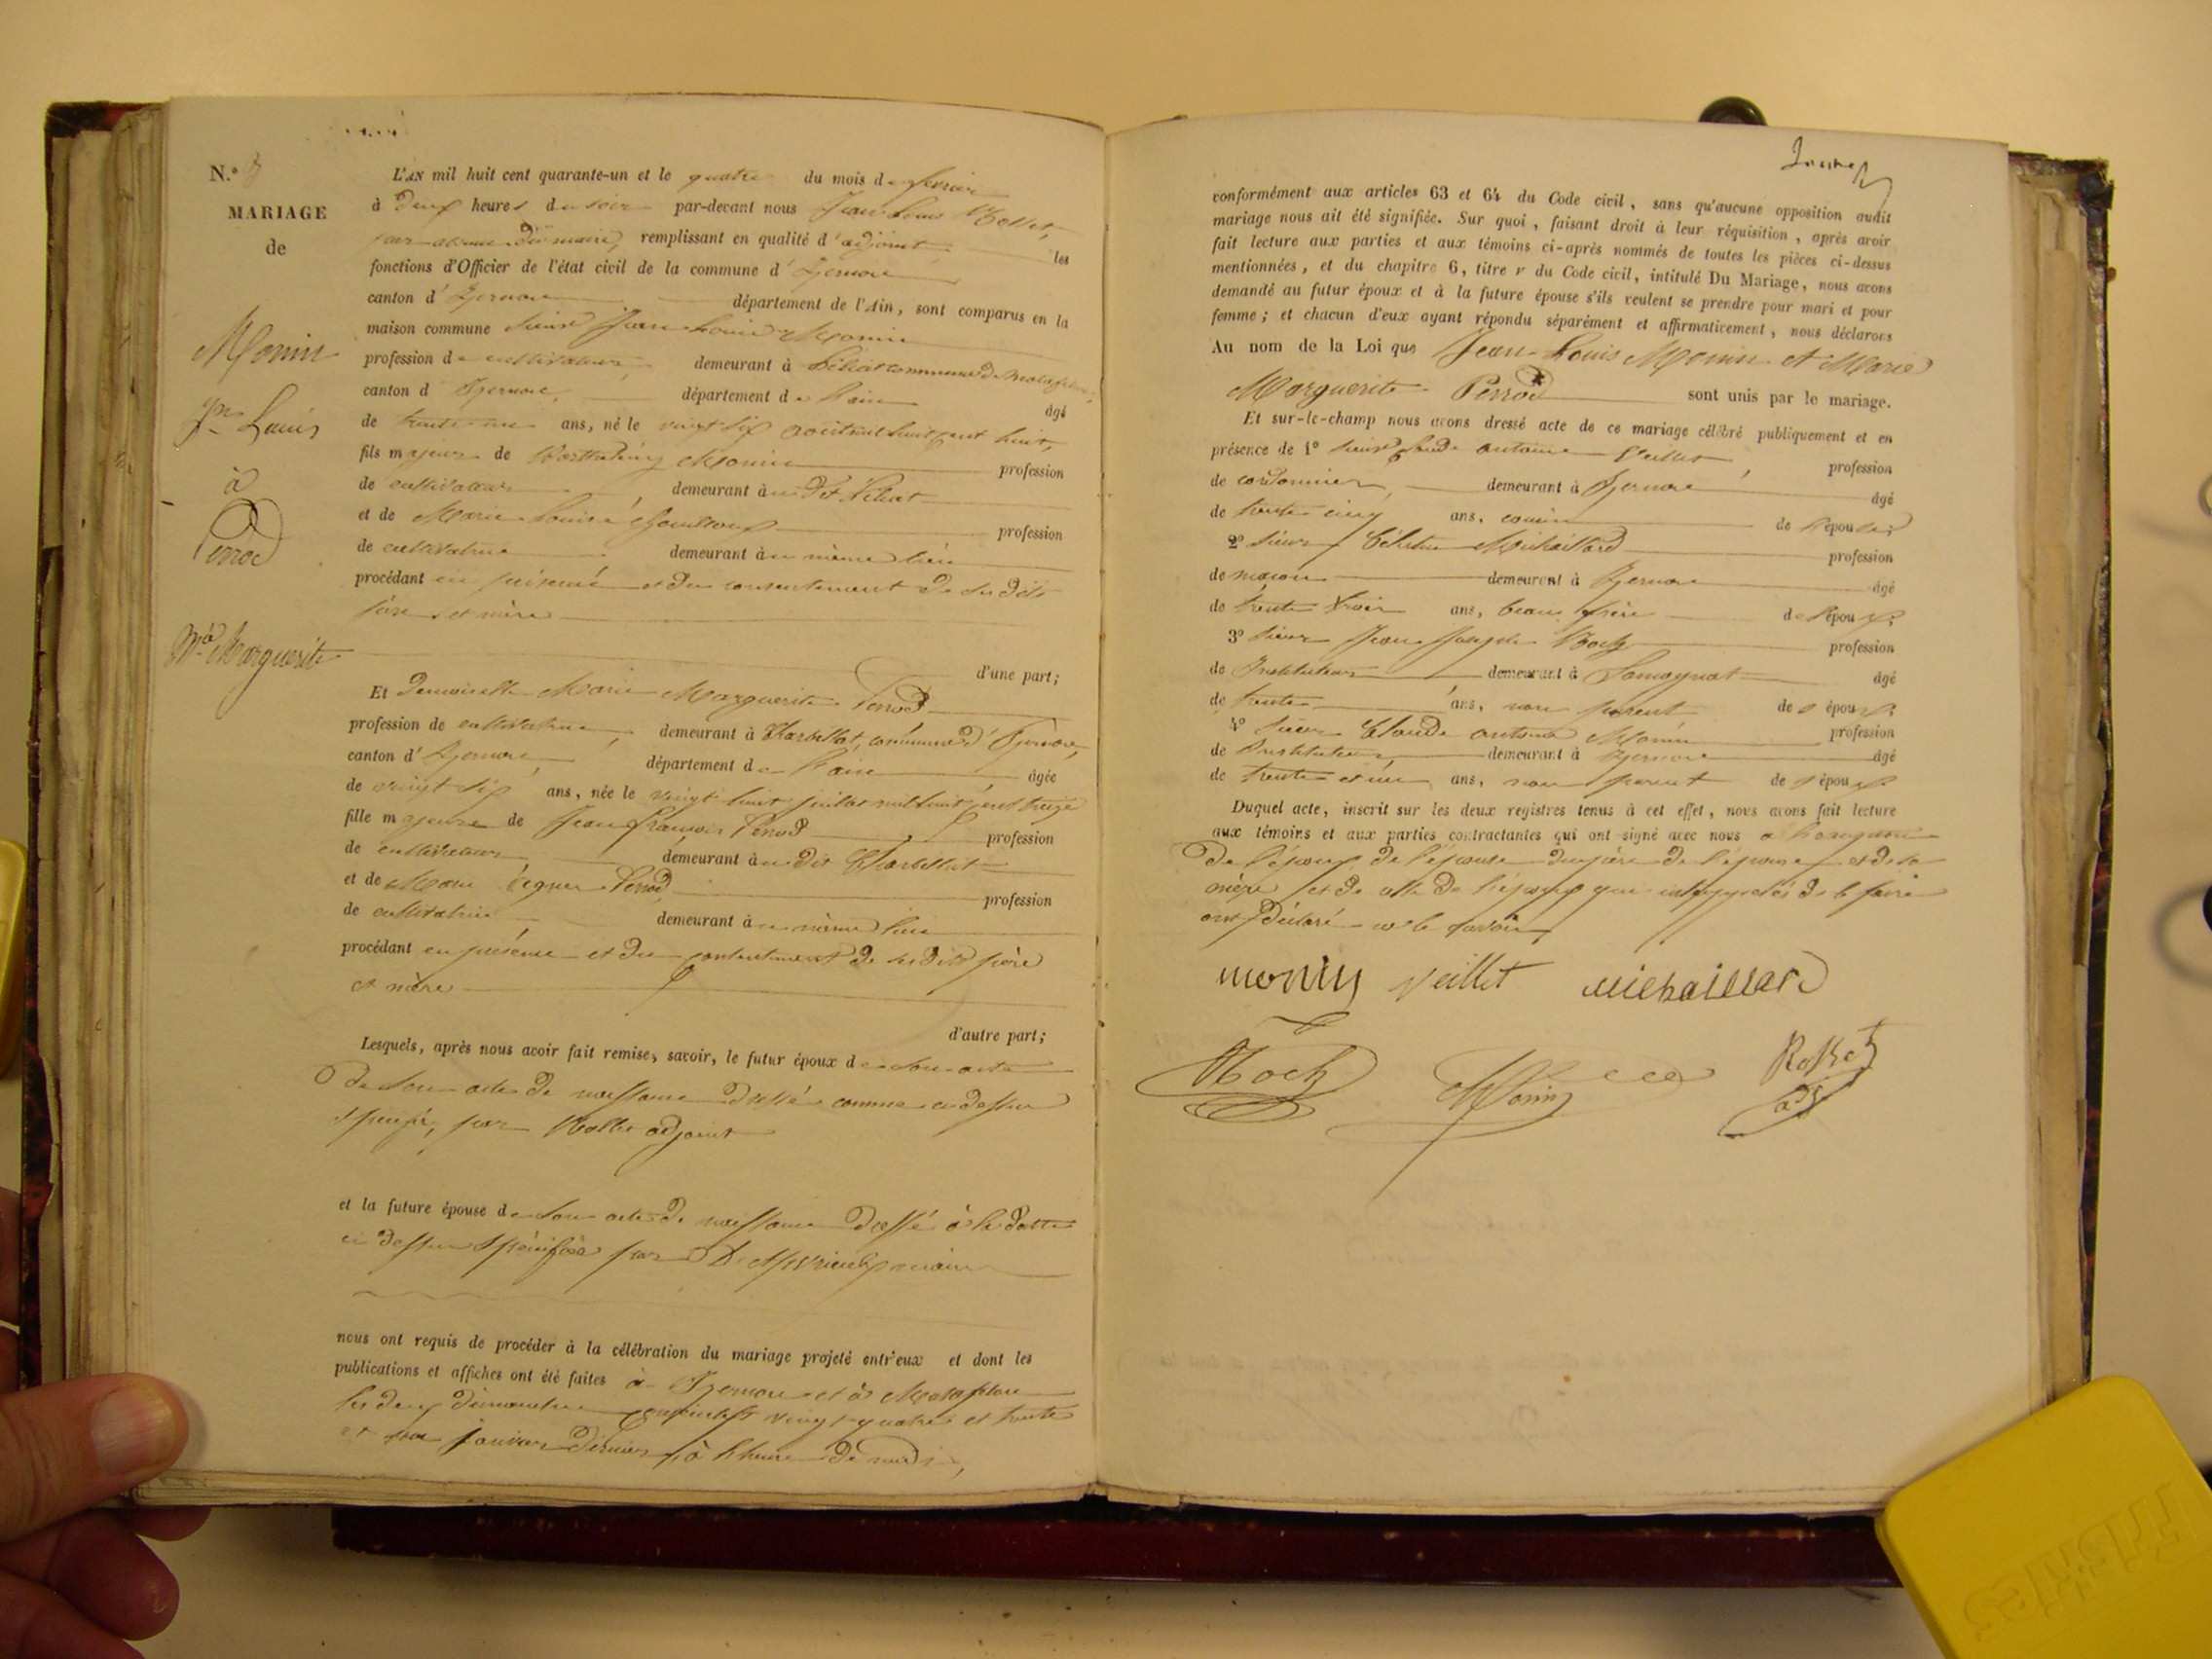 N.º
MARIAGE
de
Monin
Jn Louis
à
Perrod
Mie Marguerite
L'AN mil huit cent quarante-un et le quatre du mois de février
à deux heures du soir par-devant nous Jean Louis Rollet,
par absence du maire, remplissant en qualité d'adjoint les
fonctions d'Officier de l'état civil de la commune d'Izernore
canton d'Izernore département de l'Ain, sont comparus en la
maison commune sieur Jean Louis Monin
profession de cultivateur, demeurant à commune de Matafelon,
canton d'Izernore, département de l'ain âgé
de trente un ans, né le vingt six août mil huit cent huit,
fils majeur de Barthélemy Monin profession
de cultivateur, demeurant au dit
et de Marie Louise profession
de cultivatrice demeurant au même lieu
procédant en présence et du consentement de ses dits
père et mère
d'une part;
Et demoiselle Marie Marguerite Perrod
profession de cultivatrice, demeurant à Charbillat, commune d'Izernore,
canton d'Izernore, département de l'ain âgée
de vingt six ans, née le vingt huit juillet mil huit cent treize
fille majeure de Jean François Perrod, profession
de cultivateur, demeurant au dit Charbillat
et de Marie Perrod profession
de cultivatrice demeurant au même lieu
procédant en présence et du consentement de ses dits père
et mère
d'autre part;
Lesquels, après nous avoir fait remise, savoir, le futur époux de son acte
de son acte de naissance dressé comme ci dessus
par Rollet adjoint
et la future épouse de son acte de naissance dressé à la datte
ci dessus spécifiée par maire
nous ont requis de procéder à la célébration du mariage projeté entr'eux et dont les
publications et affiches ont été faites à Izernore et à Matafelon
les deux dimanches consécutifs vingt quatre et trente
et un janvier dernier, à l'heure de midi,
conformément aux articles 63 et 64 du Code civil, sans qu'aucune opposition audit
mariage nous ait été signifiée. Sur quoi, faisant droit à leur réquisition, après avoir
fait lecture aux parties et aux témoins ci-après nommés de toutes les pièces ci-dessus
mentionnées, et du chapitre 6, titre v du Code civil, intitulé Du Mariage, nous avons
demandé au futur époux et à la future épouse s'ils veulent se prendre pour mari et pour
femme; et chacun d'eux ayant répondu séparément et affirmativement, nous déclarons
Au nom de la Loi que Jean Louis Monin et Marie
Marguerite Perrod sont unis par le mariage.
Et sur-le-champ nous avons dressé acte de ce mariage célébré publiquement et en
présence de 1º sieur Claude antoine Veillet, profession
de cordonnier, demeurant à Izernore âgé
de trente cinq ans, cousin de l'épouse;
2º sieur Célestin Michaillard profession
de maçon demeurant à Izernore âgé
de trente trois ans, beau frère de l'époux;
3º sieur Jean Joseph Roch profession
de Instituteur demeurant à Samognat âgé
de trente ans, non parent des époux;
4º sieur Claude antoine Monin profession
de Instituteur demeurant à Izernore âgé
de trente et un ans, non parent des époux
Duquel acte, inscrit sur les deux registres tenus à cet effet, nous avons fait lecture
aux témoins et aux parties contractantes qui ont signé avec nous
de l'époux de l'épouse du père de l'épouse et de sa
mère et de celle de l'époux qui interpellés de le faire
ont déclaré ne le savoir
monin Veillet Michaillard
Roch Monin Rollet
adj